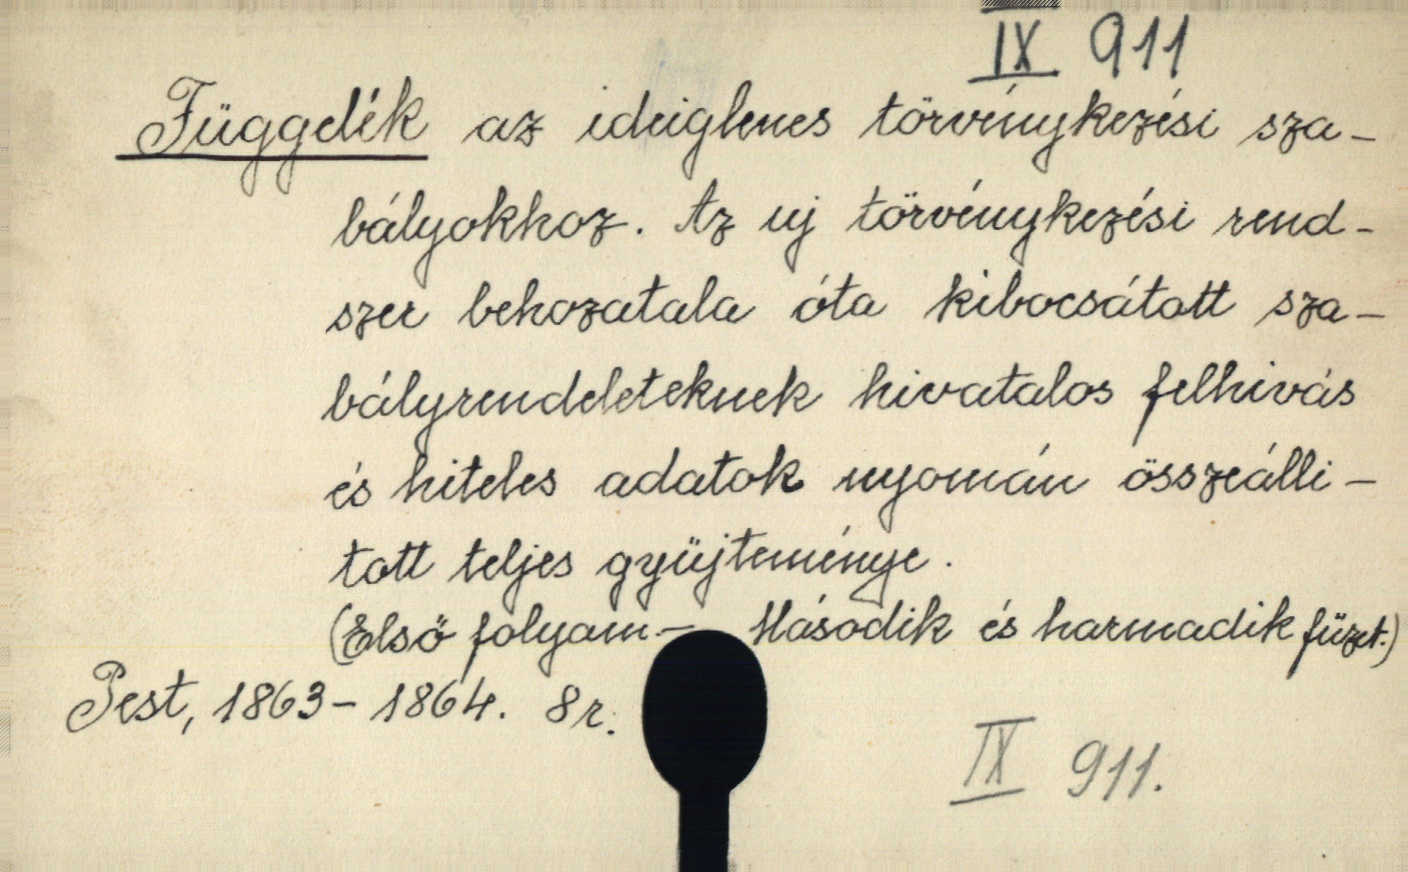 IX 911
Függelék az ideiglenes törvénykezési sza-
bályokhoz. Az uj törvénykezési rend-
szer behozatala óta kibocsátott sza-
bályrendeleteknek hivatalos felhivás
és hiteles adatok nyomán összeálli-
tott teljes gyüjteménye.
(Első folyam - Második és harmadik füzet.)
Pest, 1863-1864. 8r.
IX 911.